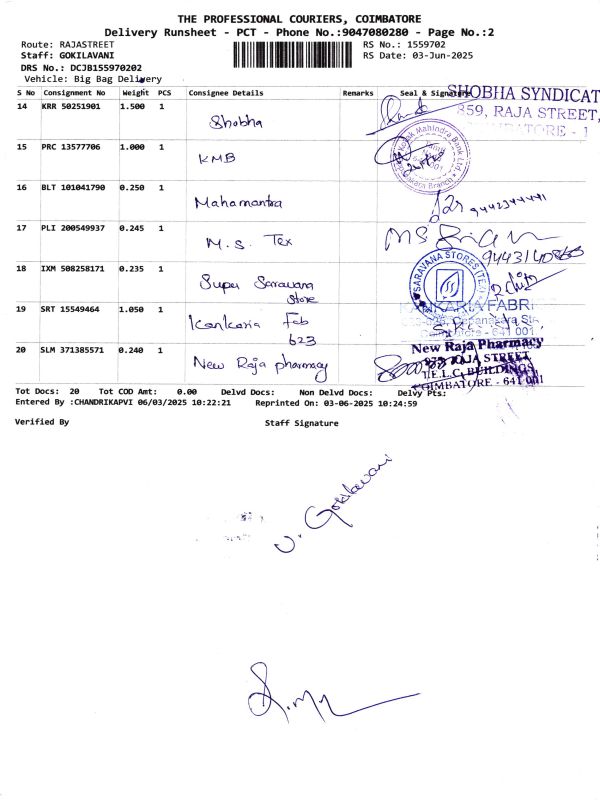 THE PROFESSIONAL COURIERS, COIMBATORE
Delivery Runsheet - PCT - Phone No.:9047080280 - Page No.:2
Route: RAJASTREET RS No.: 1559702
Staff: GOKILAVANI RS Date: 03-Jun-2025
DRS No.: DCJB155970202
Vehicle: Big Bag Delivery
S No Consignment No Weight PCS Consignee Details Remarks Seal & Signature
14 KRR 50251901 1.500 1 Shobha SHOBHA SYNDICAT
859, RAJA STREET,
15 PRC 13577706 1.000 1 KMB Kotak Mahindra Bank Ltd.
16 BLT 101041790 0.250 1 Mahamantra
17 PLI 200549937 0.245 1 M.S. Tex MS
18 IXM 508258171 0.235 1 Super Saravana Store SARAVANA STORES (TEX)
19 SRT 15549464 1.050 1 Kankaria Fab 623 KANKARIA FABRI
641 001
20 SLM 371385571 0.240 1 New Raja pharmacy New Raja Pharmacy
RAJA STREET
T.E.L.C. BUILDINGS
COIMBATORE - 641 001
Tot Docs: 20 Tot COD Amt: 0.00 Delvd Docs: Non Delvd Docs: Delvy Pts:
Entered By :CHANDRIKAPVI 06/03/2025 10:22:21 Reprinted On: 03-06-2025 10:24:59
Verified By Staff Signature
V. Gokilavani